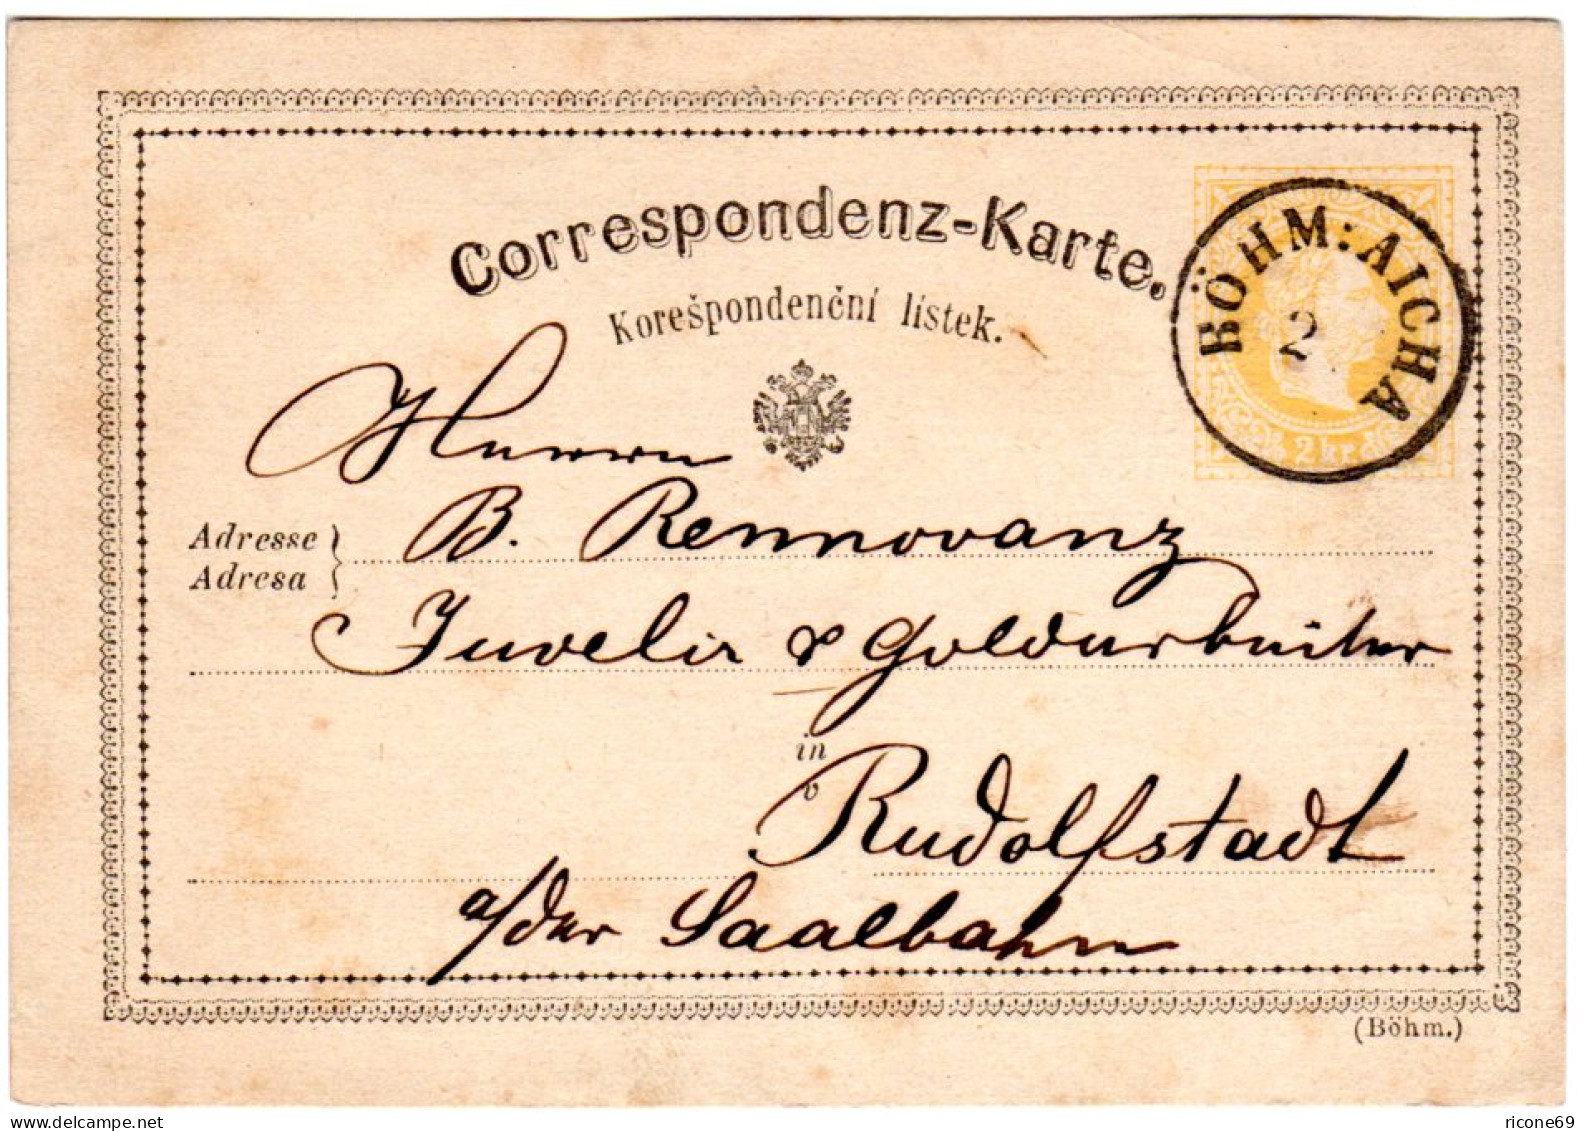 Correspondenz-Karte.
Korešpondenční lístek.
BÖHM: AICHA
2
2 kr
Herrn
Adresse
Adresa
B. Rennovanz
Juvelir & Goldarbeiter
in
v
Rudolfstadt
a/der Saalbahn
(Böhm.)
delcampe.net
ricone69